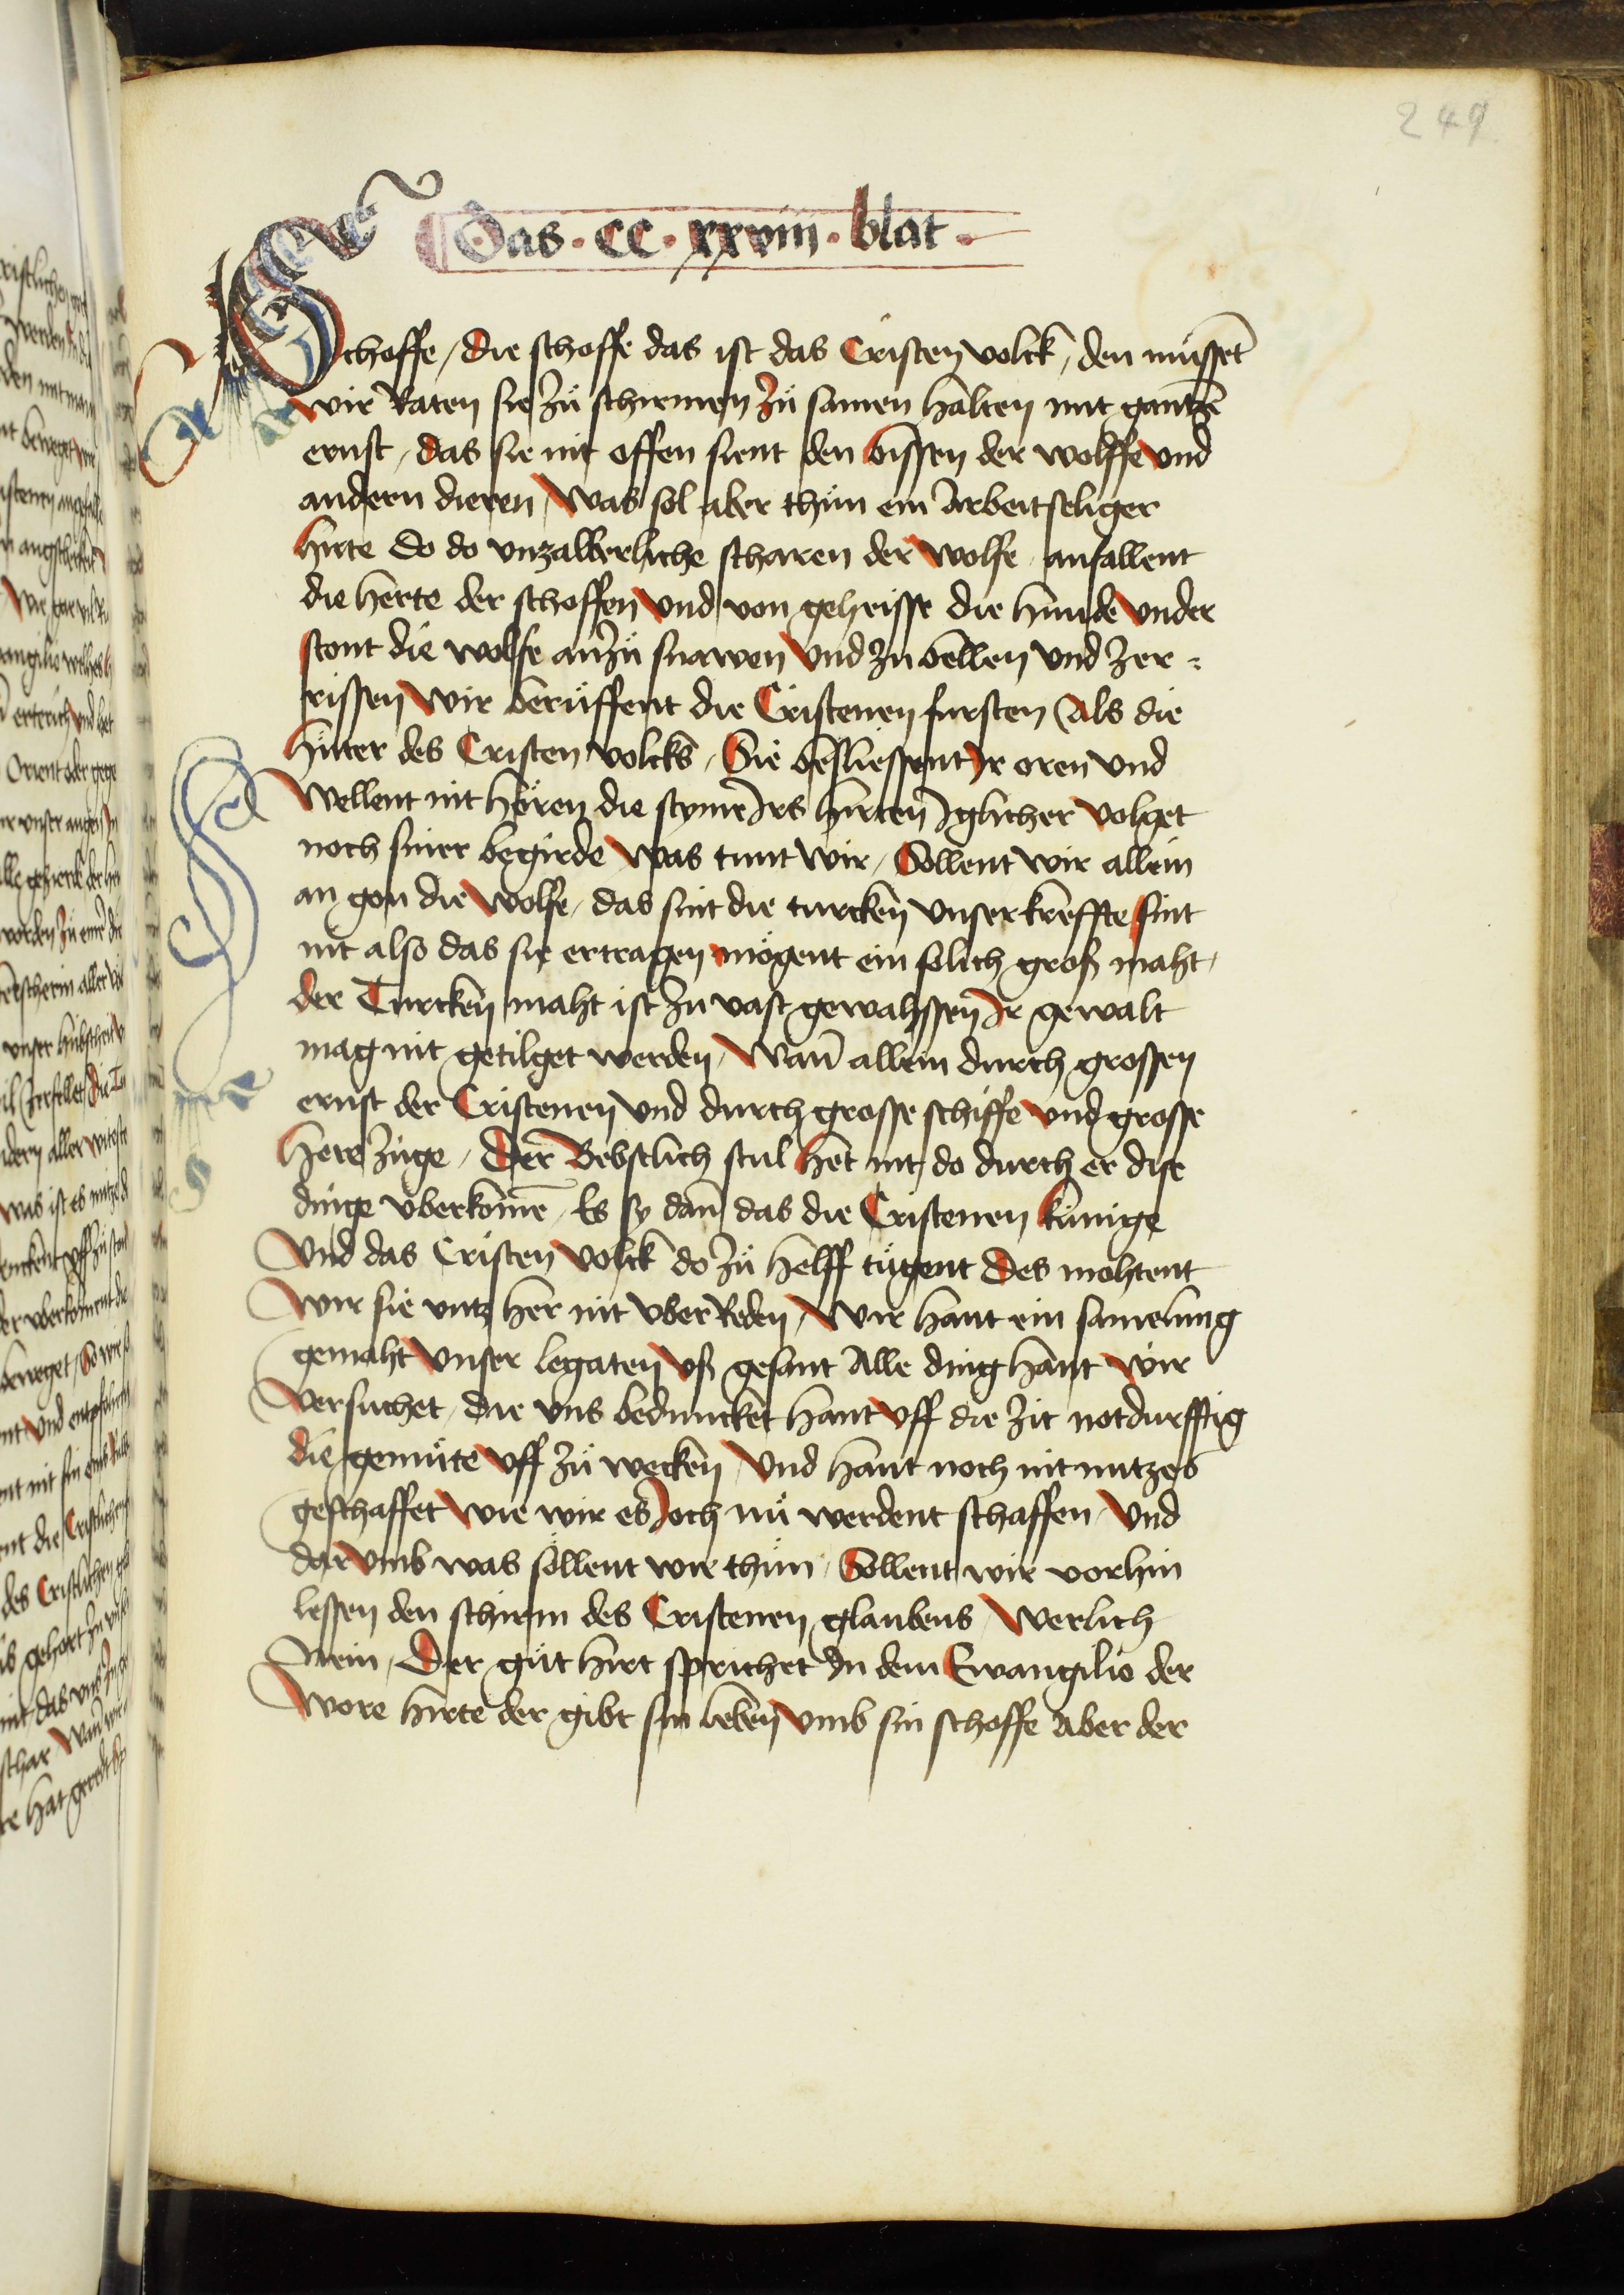 249
Das · CC · xxviii · blat ·
Schoffe / die schoffe das ist das Cristen volck / den müsset
wir Raten sie zü schirmen zü samen halten mit gantzē
ernst / das sie nit offen sient den bissen der wolffe vnd
andern dieren / Was sol aber thün ein Arbeitseliger
hirte do do vnzalberliche scharen der wolfe anfallent
die herte der schoffen vnd von geheisse die hunde vnder
stont die wolfe an zü snawen vnd zu bellen vnd zer⸗
rissen wir berüffent die Cristenen fursten Als die
hüter des Cristen volcks / Sie besliessent Ir oren vnd
Wellent nit hören die styme Irs hirten Iglicher volget
noch siner begirde Was tunt wir / Söllent wir allein
an gon die wolfe / das sint die turcken vnser kreffte sint
nit also das sie ertragen mögent ein solich groß maht /
der Turcken maht ist zu vast gewahssen Ir gewalt
mag nit getilget werden / Wan̄ allein durch grossen
ernst der Cristenen vnd durch grosse schiffe vnd grosse
here züge / Der Bebstlich stul het nit do durch er dise
dinge vberkōme / Es sy dan̄ das die Cristenen künige
Vnd das Cristen volck do zü helff tügent Des mohtent
Wir sie vntz her nit vber Reden / Wir hant ein samelung
gemaht vnser legaten vß gesant Alle ding hant wir
Versuchet / die vns beduncket hant vff die zit notdurfftig
die gemüte vff zü wecken / Vnd hant noch nit nutzes
geschaffet wie wir es Joch nü werdent schaffen / Vnd
dar vmb was söllent wir thün / Söllent wir vorhin
lessen den schirm des Cristenen glaubens / Werlich
Nein / Der güt hirt sprichet In dem Ewangilio der
Wore hirte der gibt sin leben vmb sin schoffe Aber der